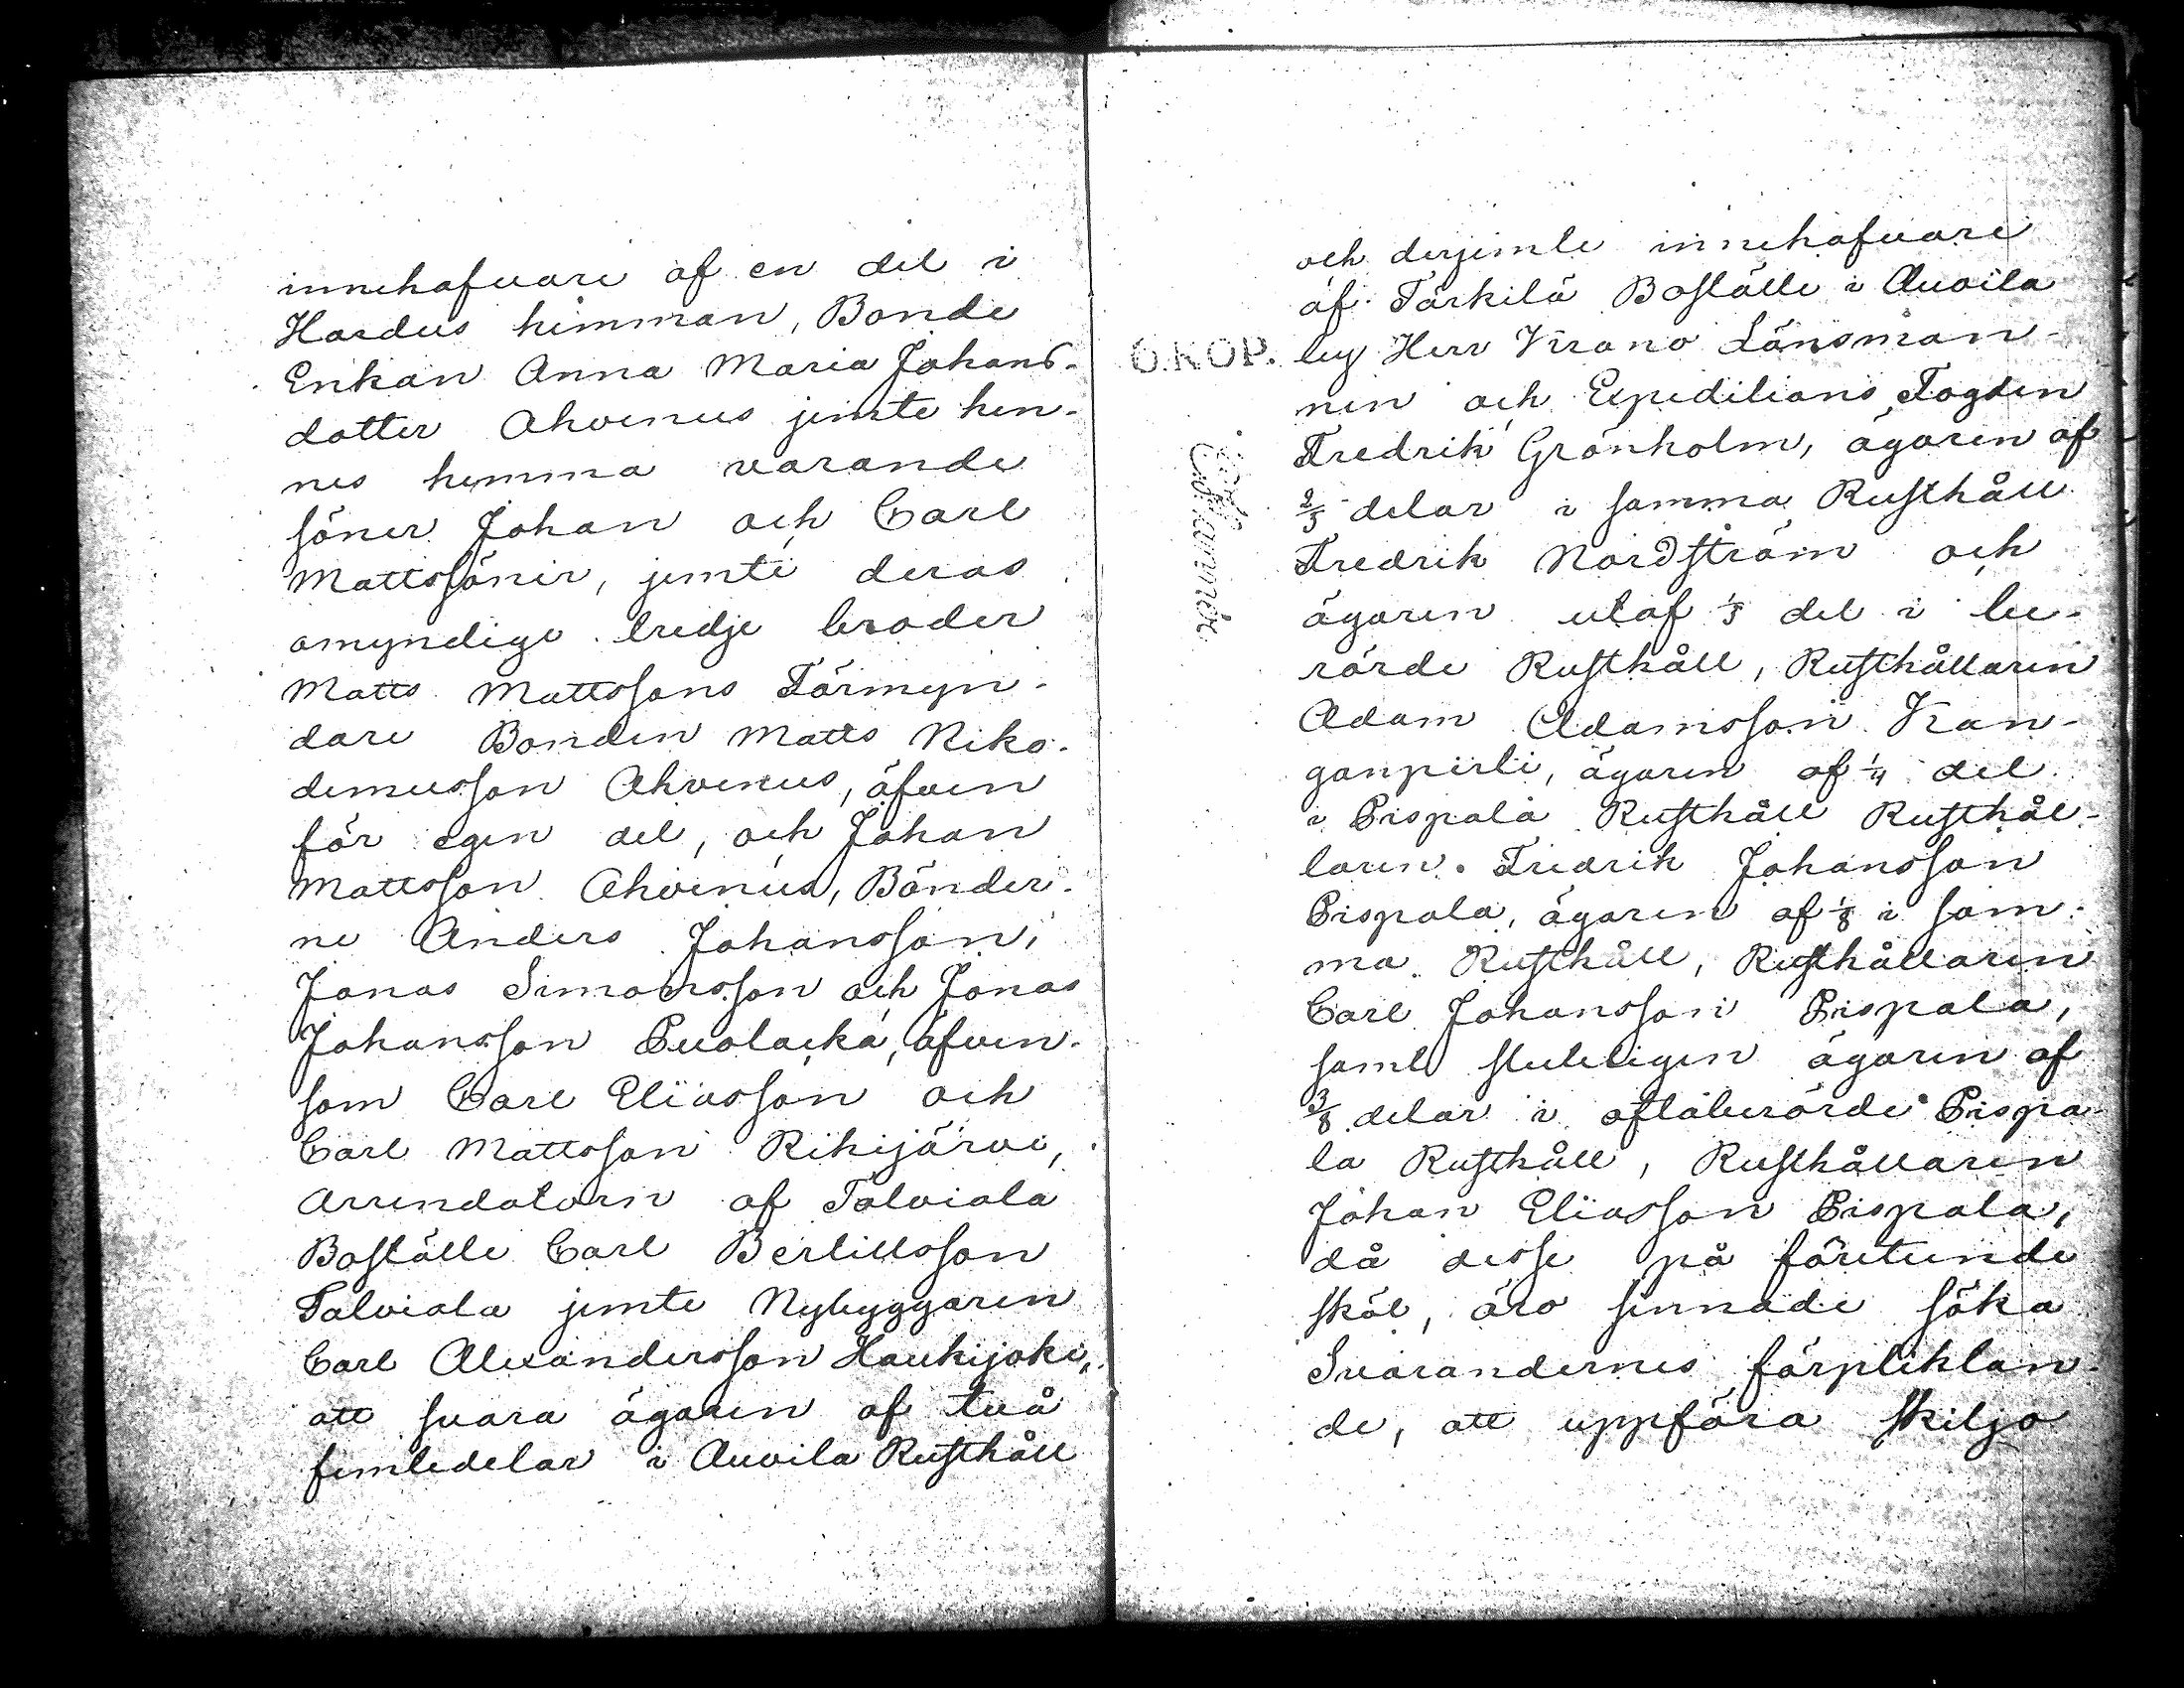 innehafvare af en del i
Hardus hemman, Bonde
Enkan Anna Maria Johans-
dotter Ahvenus jemte hen-
nes hemma varande
söner Johan och Carl
Mattssöner, jemte deras
omyndige tredje broder
Matts Mattssons Förmyn-
dare Bonden Matts Niko-
demusson Ahvenus, äfven
för egen del, och Johan
Mattsson Ahvenus, Bönder-
ne Anders Johansson,
Jonas Simonsson och Jonas
Johansson Puolacka, äfven-
som Carl Eliasson och
Carl Mattsson Rikijärvi,
Arrendatorn af Talviala
Boställe Carl Bertillsson
Talviala jemte Nybyggaren
Carl Alexandersson Haukijoki,
att svara ägaren af två
femtedelar i Auvila Rusthåll
och derjemte innehafvare
af Tärkilä Boställe i Auvila
by Herr Krono Länsman-
nen och Expeditions Fogden
Fredrik Grönholm, ägaren af
2/5 delar i samma Rusthåll
Fredrik Nordström och
ägaren utaf 1/5 del i be-
rörde Rusthåll, Rusthållaren
Adam Adamsson Kan-
ganpieli, ägaren af 1/4 del
i Pispala Rusthåll Rusthål-
laren Fredrik Johansson
Pispala, ägaren af 1/8 i sam-
ma Rusthåll, Rusthållaren
Carl Johansson Pispala,
samt sluteligen ägaren af
3/8 delar i oftaberörde Pispa-
la Rusthåll, Rusthållaren
Johan Eliasson Pispala,
då desse på företeende
skäl, äro sinnade söka
Svarandernes förpliktan-
de, att uppföra skiljo
6.KOP.